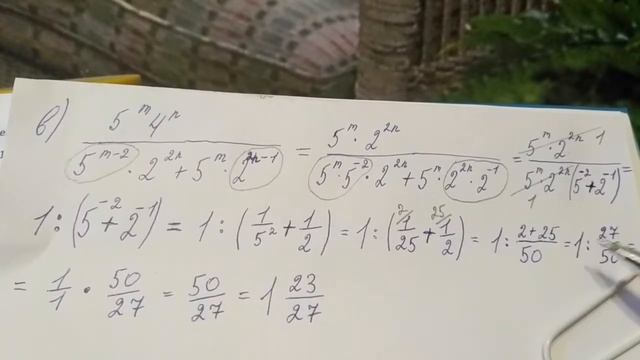 в) 5^m 4^n / (5^(m-2) · 2^(2n) + 5^m · 2^(2n-1)) = 5^m · 2^(2n) / (5^m · 5^(-2) · 2^(2n) + 5^m · 2^(2n) · 2^(-1)) = 5^m · 2^(2n) 1 / (5^m · 2^(2n) (5^(-2) + 2^(-1))) 1 =
1 : (5^(-2) + 2^(-1)) = 1 : (1/5² + 1/2) = 1 : (2 1/25 + 25 1/2) = 1 : (2+25)/50 = 1 : 27/50 =
= 1/1 · 50/27 = 50/27 = 1 23/27